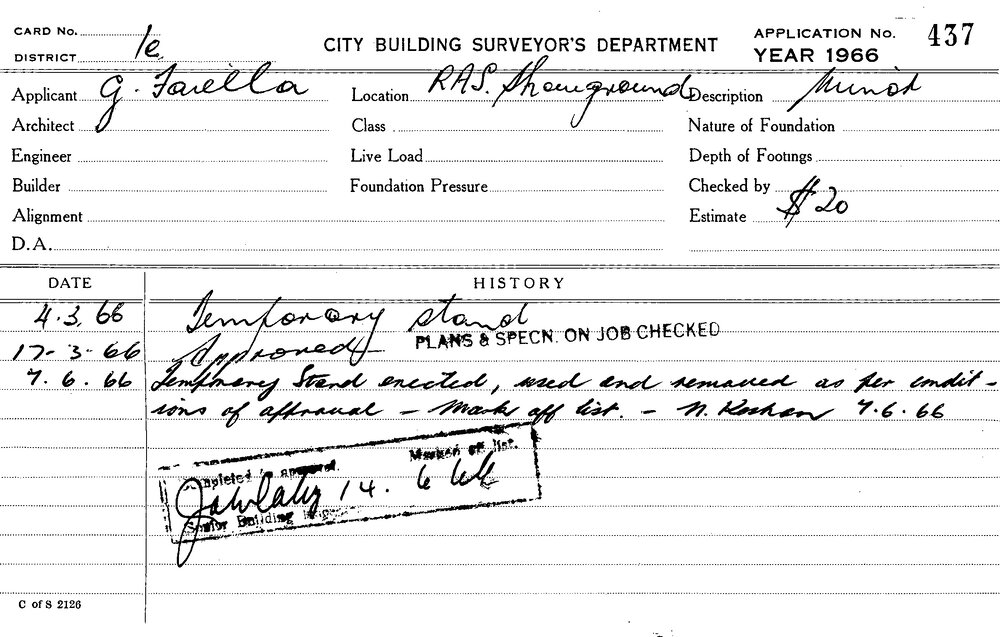 CARD No.
DISTRICT 1e
CITY BUILDING SURVEYOR'S DEPARTMENT
APPLICATION No. 437
YEAR 1966
Applicant G. Faiella Location RAS. Showground Description Minor
Architect Class Nature of Foundation
Engineer Live Load Depth of Footings
Builder Foundation Pressure Checked by
Alignment Estimate $20
D.A.
DATE HISTORY
4.3.66 Temporary stand
17-3-66 Approved PLANS & SPECN. ON JOB CHECKED
7.6.66 Temporary Stand erected, used and removed as per condit-
ions of approval - Mark off list. - 7.6.66
Completed approval. Marked off list.
14.6.66
Senior Building
C of S 2126